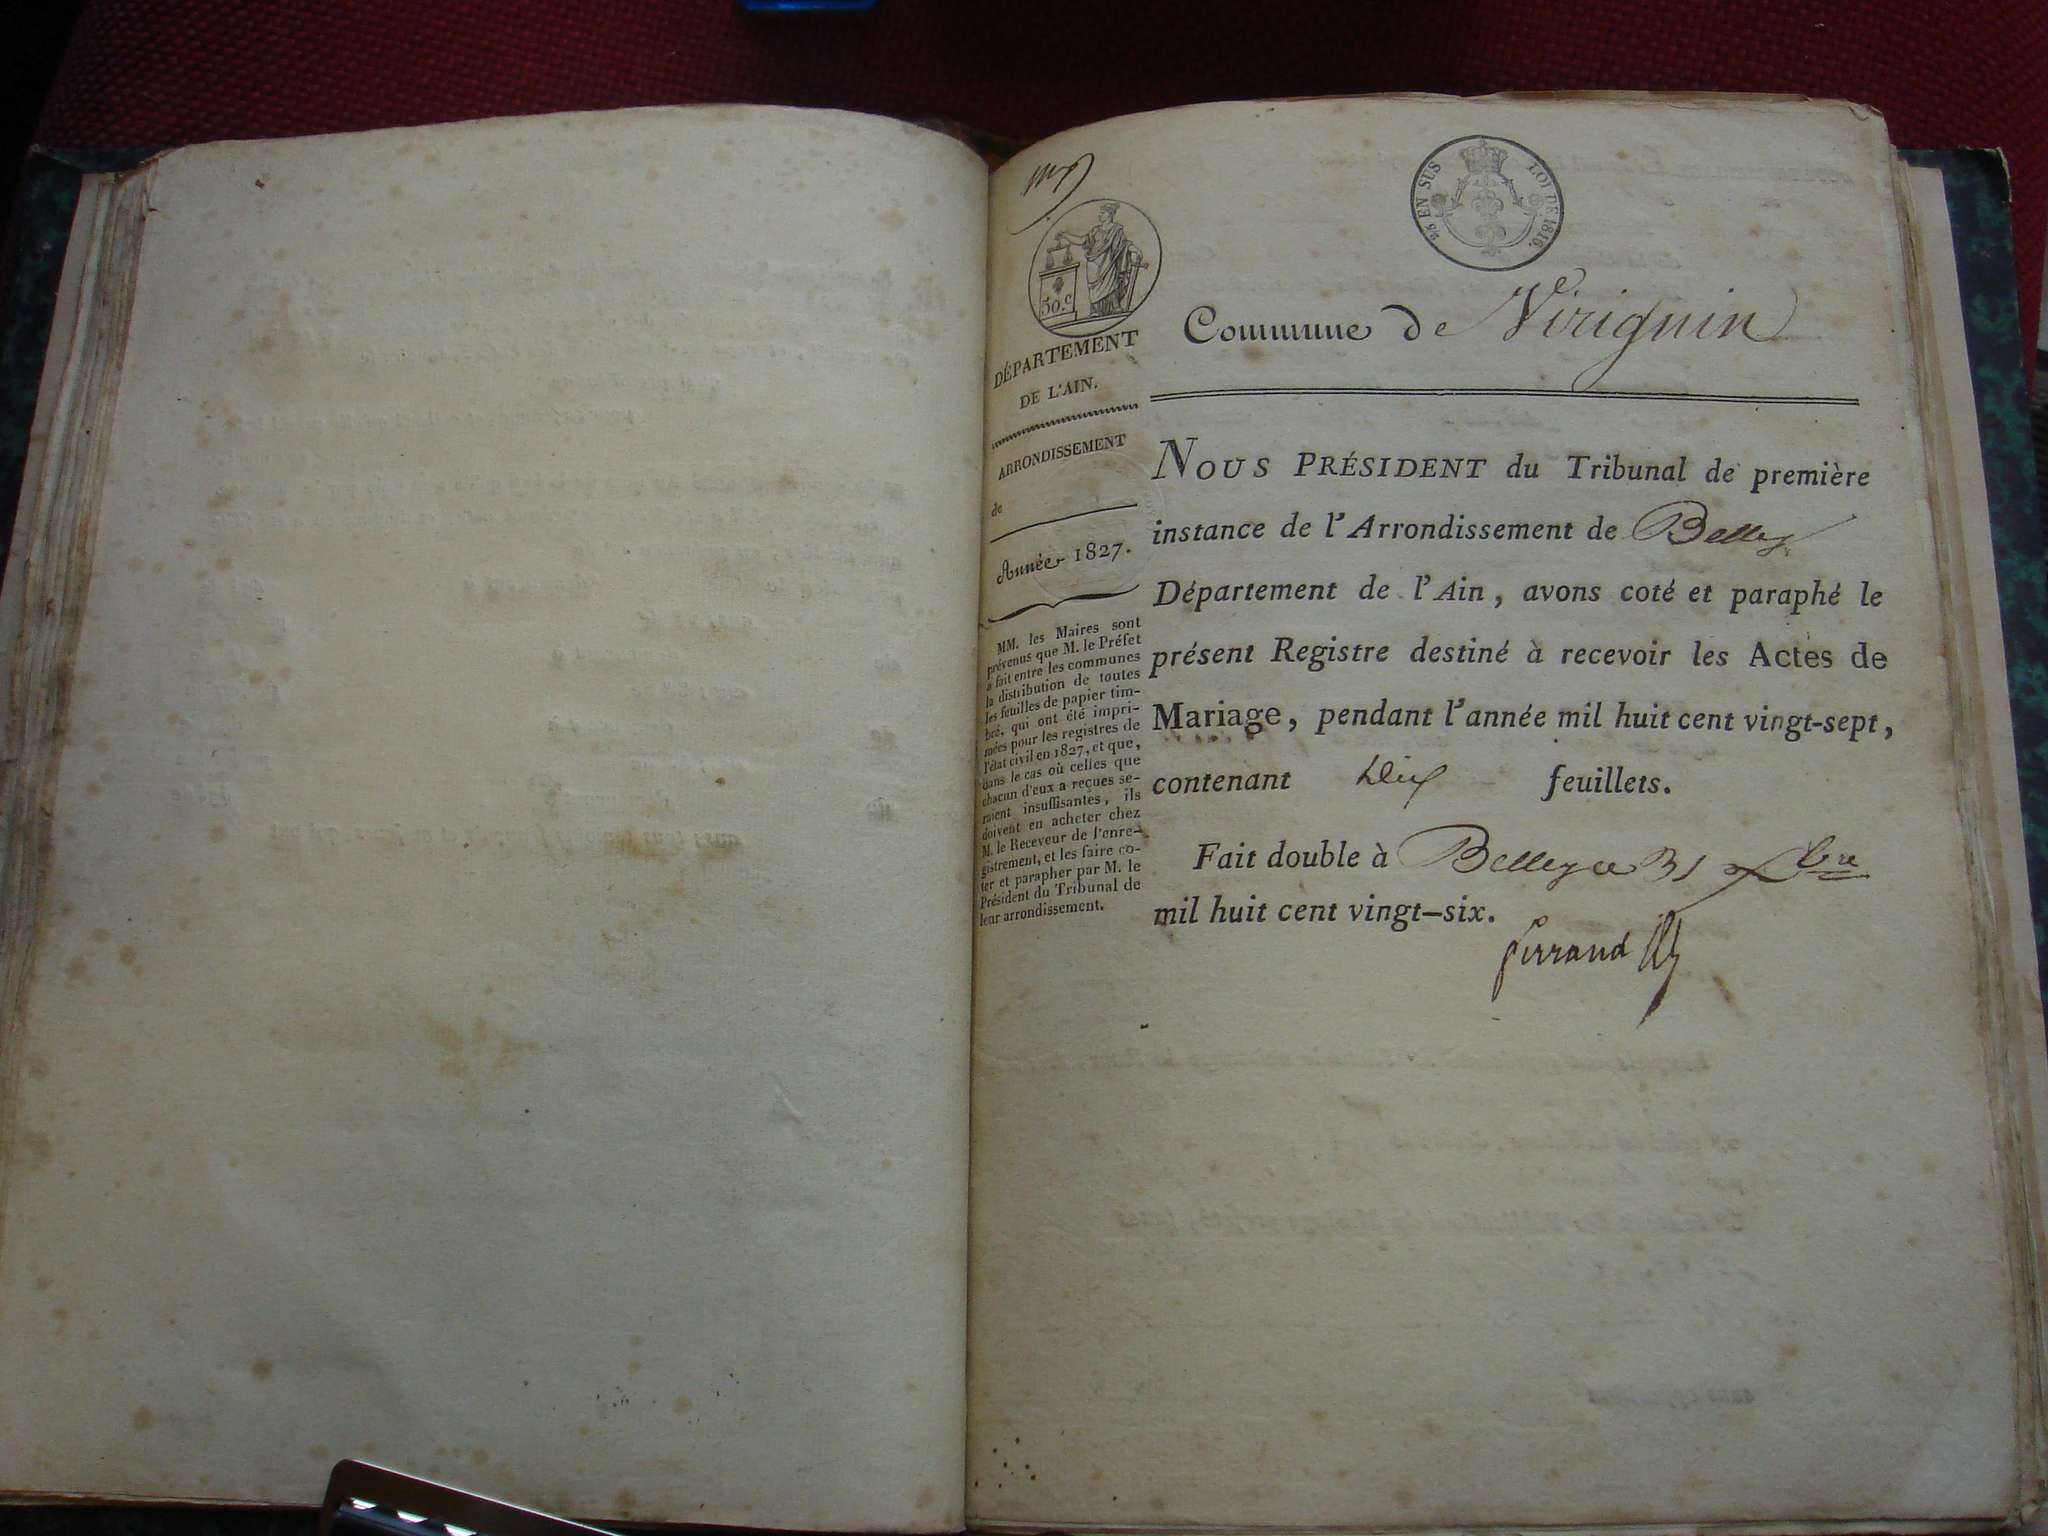 25 EN SUS LOI DE 1816.
50.c
DÉPARTEMENT
DE L'AIN.
ARRONDISSEMENT
de
Année 1827.
MM. les Maires sont
prévenus que M. le Préfet
a fait entre les communes
la distribution de toutes
les feuilles de papier tim-
bré, qui ont été impri-
mées pour les registres de
l'état civil en 1827, et que,
dans le cas où celles que
chacun d'eux a reçues se-
raient insuffisantes, ils
doivent en acheter chez
M. le Receveur de l'enre-
gistrement, et les faire co-
ter et parapher par M. le
Président du Tribunal de
leur arrondissement.
Commune de Virignin
NOUS PRÉSIDENT du Tribunal de première
instance de l'Arrondissement de Belley
Département de l'Ain, avons coté et paraphé le
présent Registre destiné à recevoir les Actes de
Mariage, pendant l'année mil huit cent vingt-sept,
contenant Dix feuillets.
Fait double à Belley ce 31 Xbre
mil huit cent vingt-six.